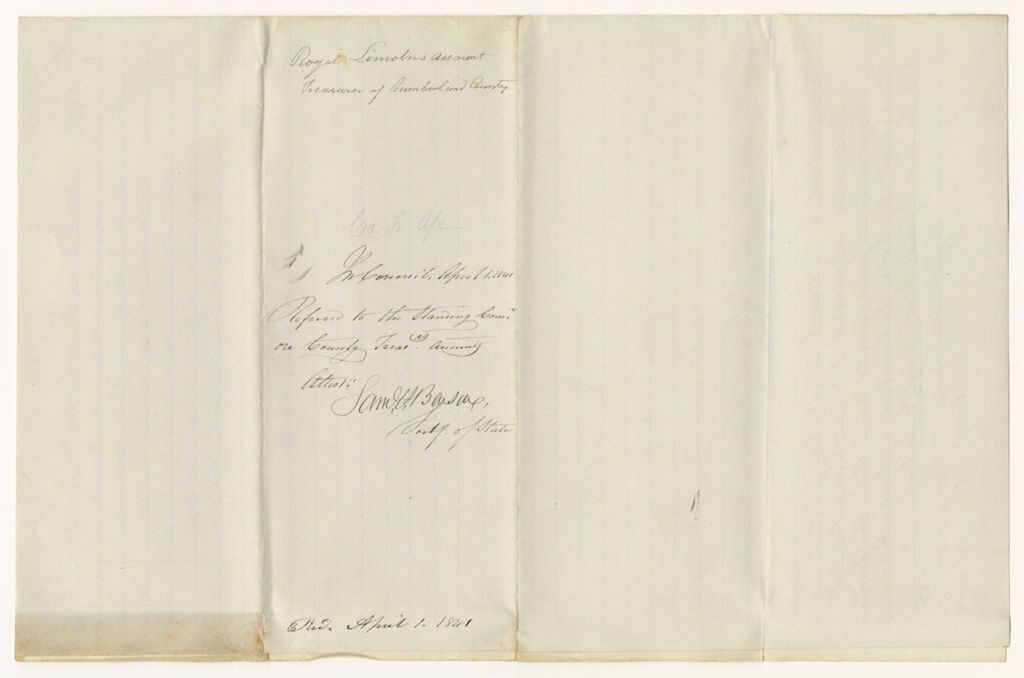 Royal Lincolns account
Treasurer of Cumberland County
Co. Tr A/c
In Council, April 1. 1841
Referred to the Standing Come
on County Treasrs. Accounts
Attest:
Secry. of State
Recd. April 1. 1841